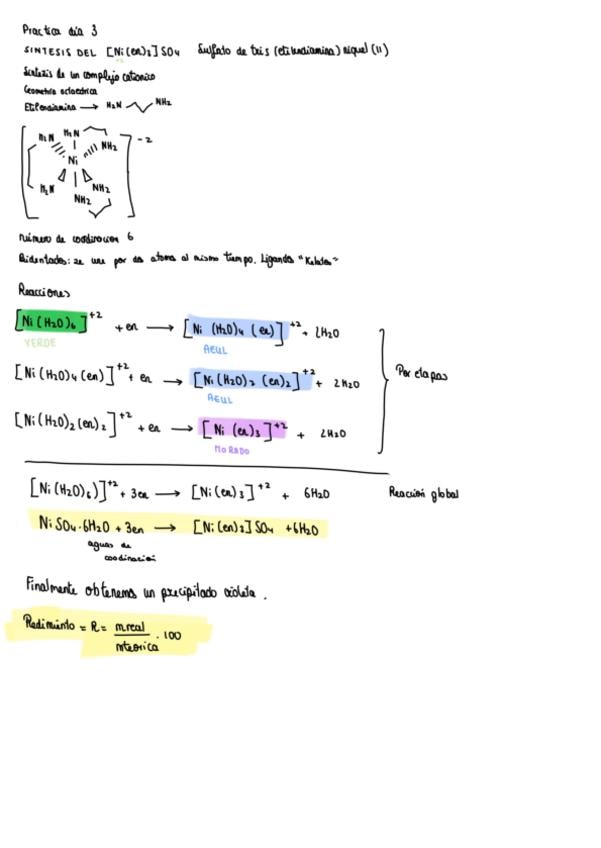 Practica día 3
SINTESIS DEL [Ni(en)3]SO4 Sulfato de tris (etilendiamina) niquel (II)
Sintesis de un complejo cationico
Geometria octaedrica
Etilendiamina → H2N NH2
H2N H2N NH2 -2
Ni
H2N NH2
NH2
número de coordinacion 6
Bidentados: se une por dos atomos al mismo tiempo. Ligandos "Kelatos"
Reacciones
[Ni(H2O)6]+2 + en → [Ni (H2O)4 (en)]+2 + 2H2O
VERDE AZUL
[Ni(H2O)4(en)]+2 + en → [Ni(H2O)2 (en)2]+2 + 2H2O Por etapas
AZUL
[Ni(H2O)2(en)2]+2 + en → [Ni (en)3]+2 + 2H2O
MORADO
[Ni(H2O)6)]+2 + 3en → [Ni(en)3]+2 + 6H2O Reacción global
NiSO4·6H2O + 3en → [Ni(en)3]SO4 + 6H2O
aguas de
coodinación
Finalmente obtenemos un precipitado violeta.
Redimiento = R = mreal / mteorica · 100